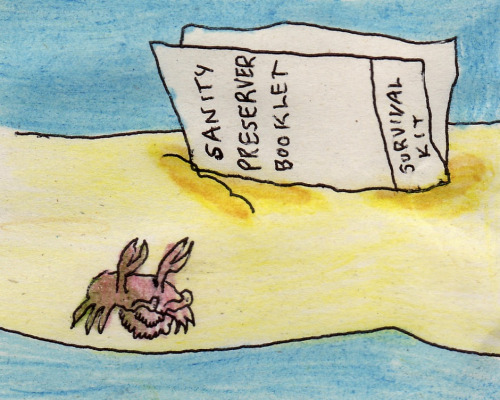 SANITY
PRESERVER
BOOKLET
SURVIVAL
KIT